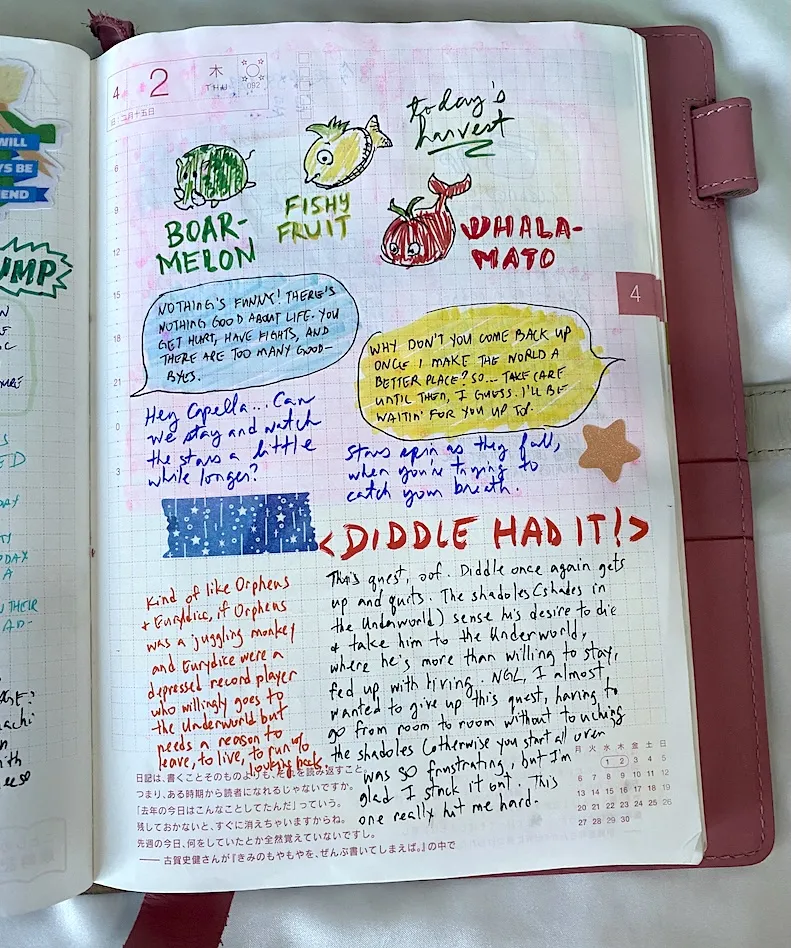 WILL
YS BE
END
UMP
ED
DAY
A
N THEIR
AD-
achi
ith
eese
4 2 木
THU
092
二月十五日
6
9
12
15
18
21
0
3
today's
harvest
BOAR-
MELON
FISHY
FRUIT
WHALA-
MATO
4
NOTHING'S FUNNY! THERE'S
NOTHING GOOD ABOUT LIFE. YOU
GET HURT, HAVE FIGHTS, AND
THERE ARE TOO MANY GOOD-
BYES.
WHY DON'T YOU COME BACK UP
ONCE I MAKE THE WORLD A
BETTER PLACE? SO... TAKE CARE
UNTIL THEN, I GUESS. I'LL BE
WAITIN' FOR YOU UP TOP.
Hey Capella... Can
we stay and watch
the stars a little
while longer?
Stars spin as they fall,
when you're trying to
catch your breath.
<DIDDLE HAD IT!>
Kind of like Orpheus
+ Eurydice, if Orpheus
was a juggling monkey
and Eurydice were a
depressed record player
who willingly goes to
the Underworld but
needs a reason to
leave, to live, to run
back.
This quest, oof. Diddle once again gets
up and quits. The shadoles (shades in
the Underworld) sense his desire to die
+ take him to the Underworld,
where he's more than willing to stay,
fed up with living. NGL, I almost
wanted to give up this quest, having to
go from room to room without touching
the shadoles (otherwise you start all over
was so frustrating, but I'm
glad I stuck it out. This
one really hit me hard.
日記は、書くことそのものよりも、それを読み返すこと、
つまり、ある時期から読者になれるじゃないですか。
「去年の今日はこんなことしてたんだ」っていう。
残しておかないと、すぐに消えちゃいますからね。
先週の今日、何をしていたとか全然覚えていないですし。
—— 古賀史健さんが『きみのもやもやを、ぜんぶ書いてしまえば。』の中で
月 火 水 木 金 土 日
1 2 3 4 5
6 7 8 9 10 11 12
13 14 15 16 17 18 19
20 21 22 23 24 25 26
27 28 29 30